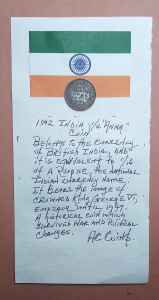 1942 INDIA 1/16 "ANNA"
COIN
BELONGS TO THE CURRENCY
OF BRITISH INDIA, AND
IT IS EQUIVALENT TO 1/16
OF A RUPEE, THE NATIONAL
INDIAN CURRENCY NAME.
IT BEARS THE IMAGE OF
CROWNED KING GEORGE VI,
EMPEROR UNTIL 1947.
A HISTORICAL COIN WHICH
SURVIVED WAR AND POLITICAL
CHANGES.
AC COINS